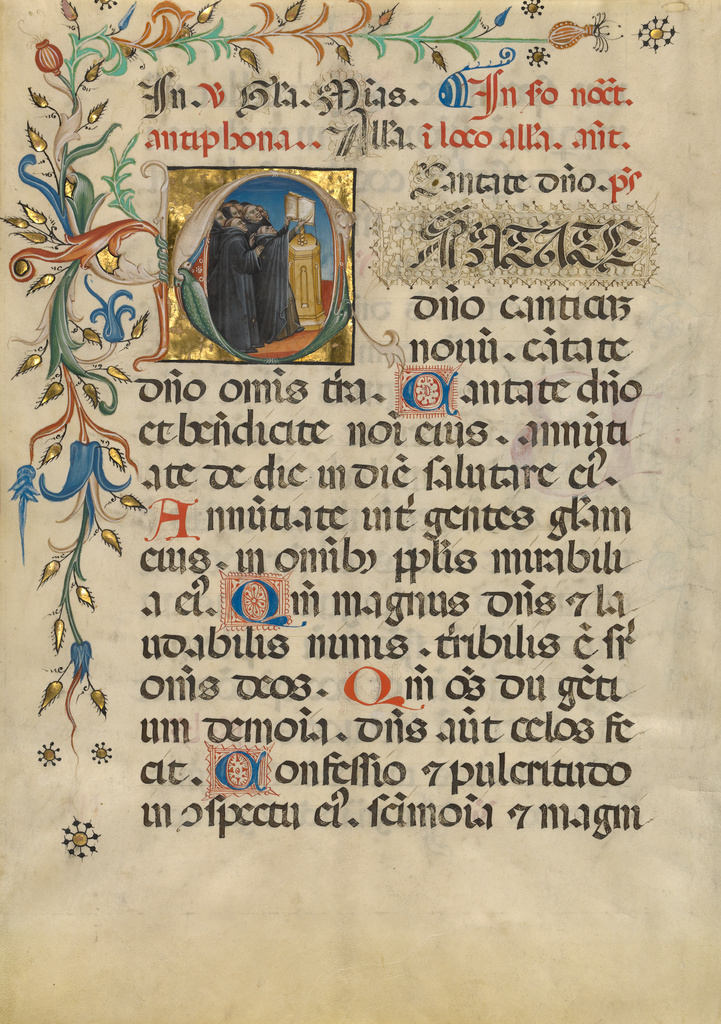 In v Gl̃a. M̃ias. In f̃o noc̃t.
antiphona.. All̃a. ĩ loco all̃a. añt.
Cantate dño. p̃s
CANTATE
dño canticuʒ
nouũ. cãtate
dño om̃is t̃ra. Cantate dño
et beñdicite noĩ eius. annũti
ate de die in diẽ salutare ei᾽.
Annũtiate int̃ gentes gl̃am
eius. in omĩbꝫ ppl̃is mirabili
a ei᾽. Qm̃ magnus dñs ⁊ la
udabilis nimis. t̃ribilis ẽ sr̃
om̃is deos. Qm̃ õs dii gẽti
um demoĩa. dñs aũt celos fe
cit. Confessio ⁊ pulcritudo
in ꝯspectu ei᾽. sc̃imoĩa ⁊ magni